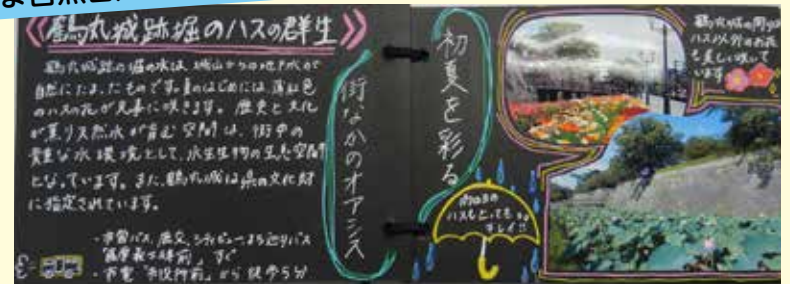 《鶴丸城跡堀のハスの群生》
鶴丸城跡の堀の水は、城山からの地下水が
自然にたまったものです。夏のはじめには、薄紅色
のハスの花が見事に咲きます。歴史と文化
が薫り天然水が育む空間は、街中の
貴重な水環境として、水生生物の生息空間
となっています。また、鶴丸城は県の文化財
に指定されています。
・市営バス、
「薩摩義士碑前」すぐ
・市電「市役所前」から徒歩5分
街なかのオアシス
初夏を彩る
雨の日の
ハスもとっても
キレイ!!
鶴丸城の周りは
ハス以外のお花
も美しく咲いて
います